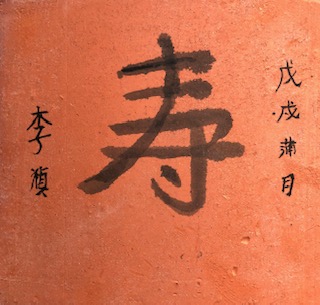 戊戌蒲月
寿
李